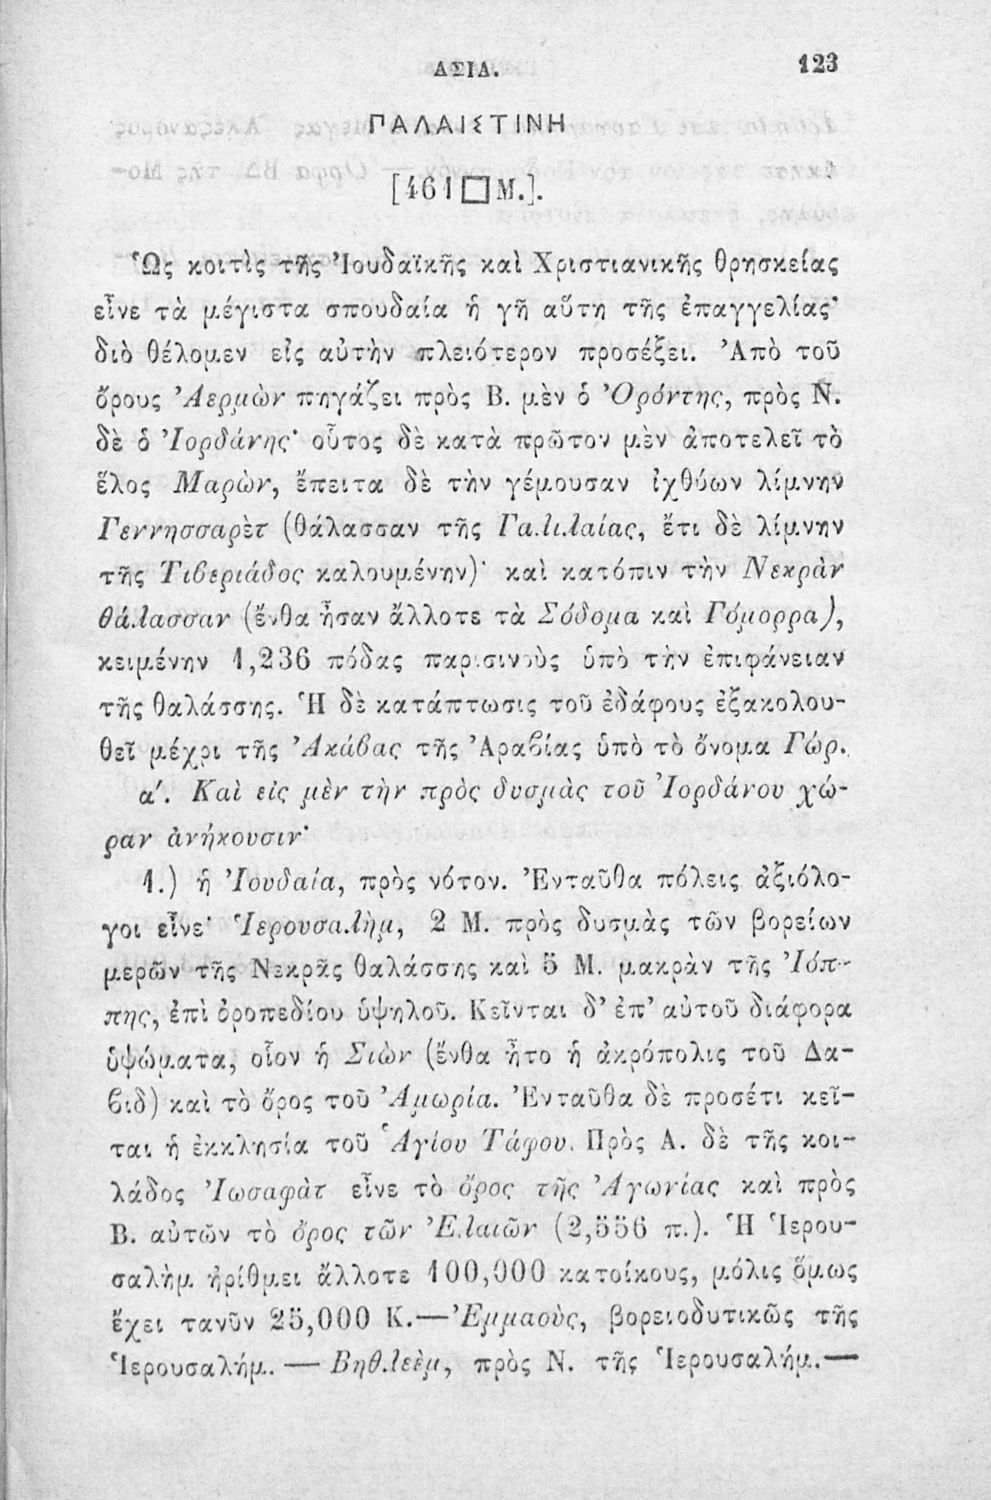 ΑΣΙΑ. 123
ΠΑΛΑΙΣΤΙΝΗ
[461 □ Μ.].
Ὡς κοιτὶς τῆς Ἰουδαϊκῆς καὶ Χριστιανικῆς θρησκείας
εἶνε τὰ μέγιστα σπουδαία ἡ γῆ αὕτη τῆς ἐπαγγελίας·
διὸ θέλομεν εἰς αὐτὴν πλειότερον προσέξει. Ἀπὸ τοῦ
ὄρους Ἀερμὼν πηγάζει πρὸς Β. μὲν ὁ Ὀρόντης, πρὸς Ν.
δὲ ὁ Ἰορδάνης· οὗτος δὲ κατὰ πρῶτον μὲν ἀποτελεῖ τὸ
ἕλος Μαρὼν, ἔπειτα δὲ τὴν γέμουσαν ἰχθύων λίμνην
Γεννησσαρὲτ (θάλασσαν τῆς Γαλιλαίας, ἔτι δὲ λίμνην
τῆς Τιβεριάδος καλουμένην)· καὶ κατόπιν τὴν Νεκρὰν
θάλασσαν (ἔνθα ἦσαν ἄλλοτε τὰ Σόδομα καὶ Γόμορρα),
κειμένην 1,236 πόδας παρισινοὺς ὑπὸ τὴν ἐπιφάνειαν
τῆς θαλάσσης. Ἡ δὲ κατάπτωσις τοῦ ἐδάφους ἐξακολου-
θεῖ μέχρι τῆς Ἀκάβας τῆς Ἀραβίας ὑπὸ τὸ ὄνομα Γώρ.
α′. Καὶ εἰς μὲν τὴν πρὸς δυσμὰς τοῦ Ἰορδάνου χώ-
ραν ἀνήκουσιν·
1.) ἡ Ἰουδαία, πρὸς νότον. Ἐνταῦθα πόλεις ἀξιόλο-
γοι εἶνε· Ἱερουσαλὴμ, 2 Μ. πρὸς δυσμὰς τῶν βορείων
μερῶν τῆς Νεκρᾶς θαλάσσης καὶ 5 Μ. μακρὰν τῆς Ἰόπ-
πης, ἐπὶ ὀροπεδίου ὑψηλοῦ. Κεῖνται δ' ἐπ' αὐτοῦ διάφορα
ὑψώματα, οἷον ἡ Σιὼν (ἔνθα ἦτο ἡ ἀκρόπολις τοῦ Δα-
βιδ) καὶ τὸ ὄρος τοῦ Ἀμωρία. Ἐνταῦθα δὲ προσέτι κεῖ-
ται ἡ ἐκκλησία τοῦ Ἁγίου Τάφου. Πρὸς Α. δὲ τῆς κοι-
λάδος Ἰωσαφὰτ εἶνε τὸ ὄρος τῆς Ἀγωνίας καὶ πρὸς
Β. αὐτῶν τὸ ὄρος τῶν Ἐλαιῶν (2,556 π.). Ἡ Ἱερου-
σαλὴμ ἠρίθμει ἄλλοτε 100,000 κατοίκους, μόλις ὅμως
ἔχει τανῦν 25,000 Κ.—Ἐμμαοὺς, βορειοδυτικῶς τῆς
Ἱερουσαλήμ. — Βηθλεὲμ, πρὸς Ν. τῆς Ἱερουσαλήμ.—